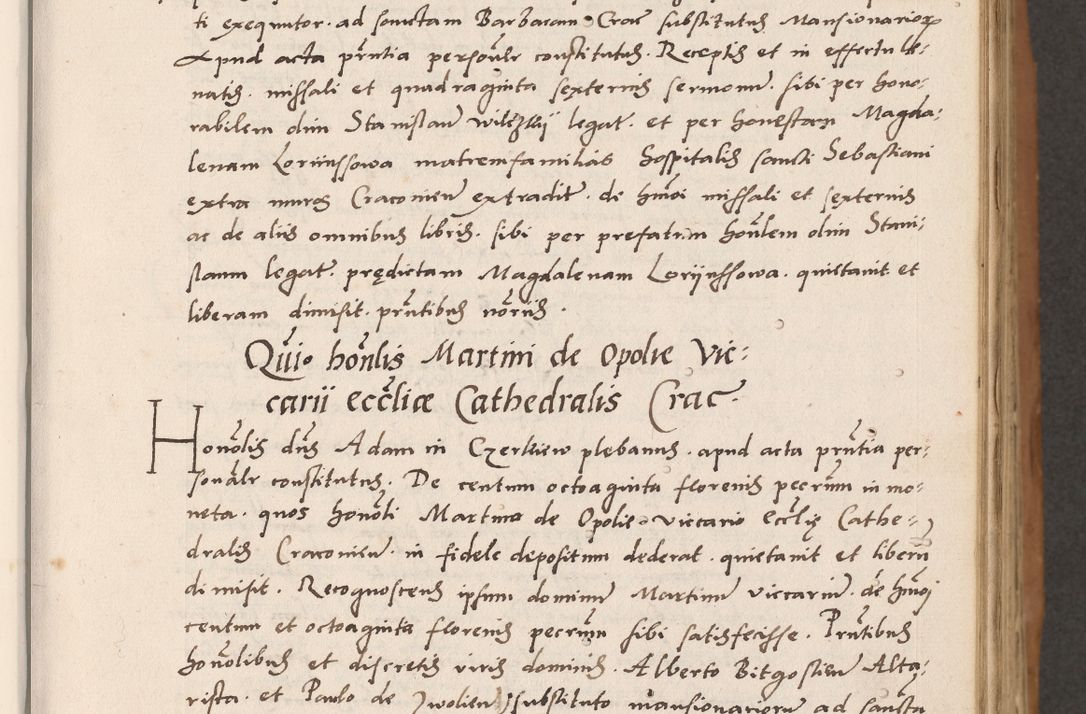 ti exequitor. ad sanctam Barbaram Crac̄ substitutus Mansionarior̄
Apud acta pr̄ntia persoñlr constitutus. Receptis et in effectu le-
natis. missali et quadraginta sexternis sermonum̄. sibi per hono-
rabilem olim Stanislaum̄ legat̄. et per honestam Magda-
lenam Loriinssowa matremfamilias hospitalis sancti Sebastiani
extra muros Cracovien̄ extradit̄. de hm̄oi missali et sexternis
ac de aliis omnibus libris. sibi per prefatum hoñlem olim Stani-
slaum legat̄. prędictam Magdalenam Lorijnssowa. quietavit et
liberam dimisit. pr̄ntibus nōriis.
Quio hoñlis Martini de Opolie Vic-
carii eccliæ Cathedralis Crac̄.
Honōlis dn̄s Adam in plebanus. apud acta pr̄ntia per-
sonālr constitutus. De centum octoaginta florenis pecc̄rum in mo-
neta. quos honōli Martino de Opolie viccario Eccl̄ię Cathe-
dralis Cracovien̄. in fidele depositum dederat. quietavit et liberū
dimisit. Recognoscens ipsum dominum̄ Martinum̄ viccarium̄. de hm̄oi
centum et octoaginta florenis pecr̄um sibi satisfecisse. Pr̄ntibus
honōlibus et discretis viris dominis. Alberto Bitgostien̄ Alta-
rista. et Paulo de substituto mansionariorum̄ ad sancta